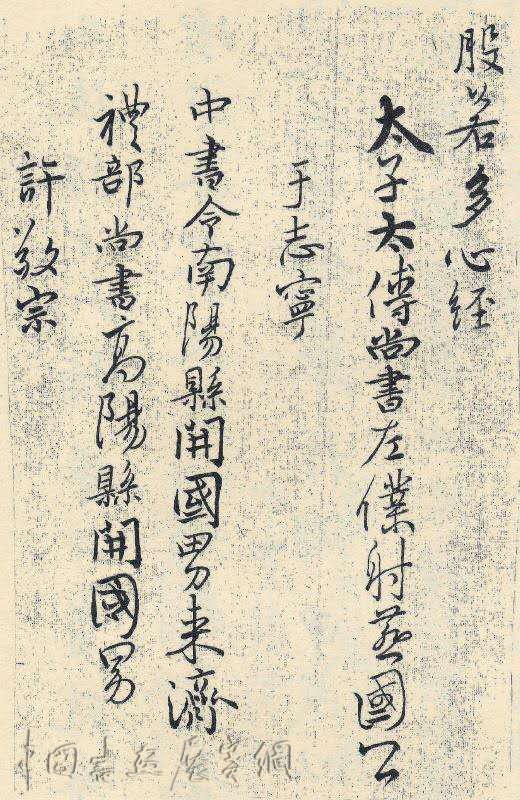 般若多心經
太子太傅尚書左僕射燕國公
于志寧
中書令南陽縣開國男来濟
禮部尚書高陽縣開國男
許敬宗